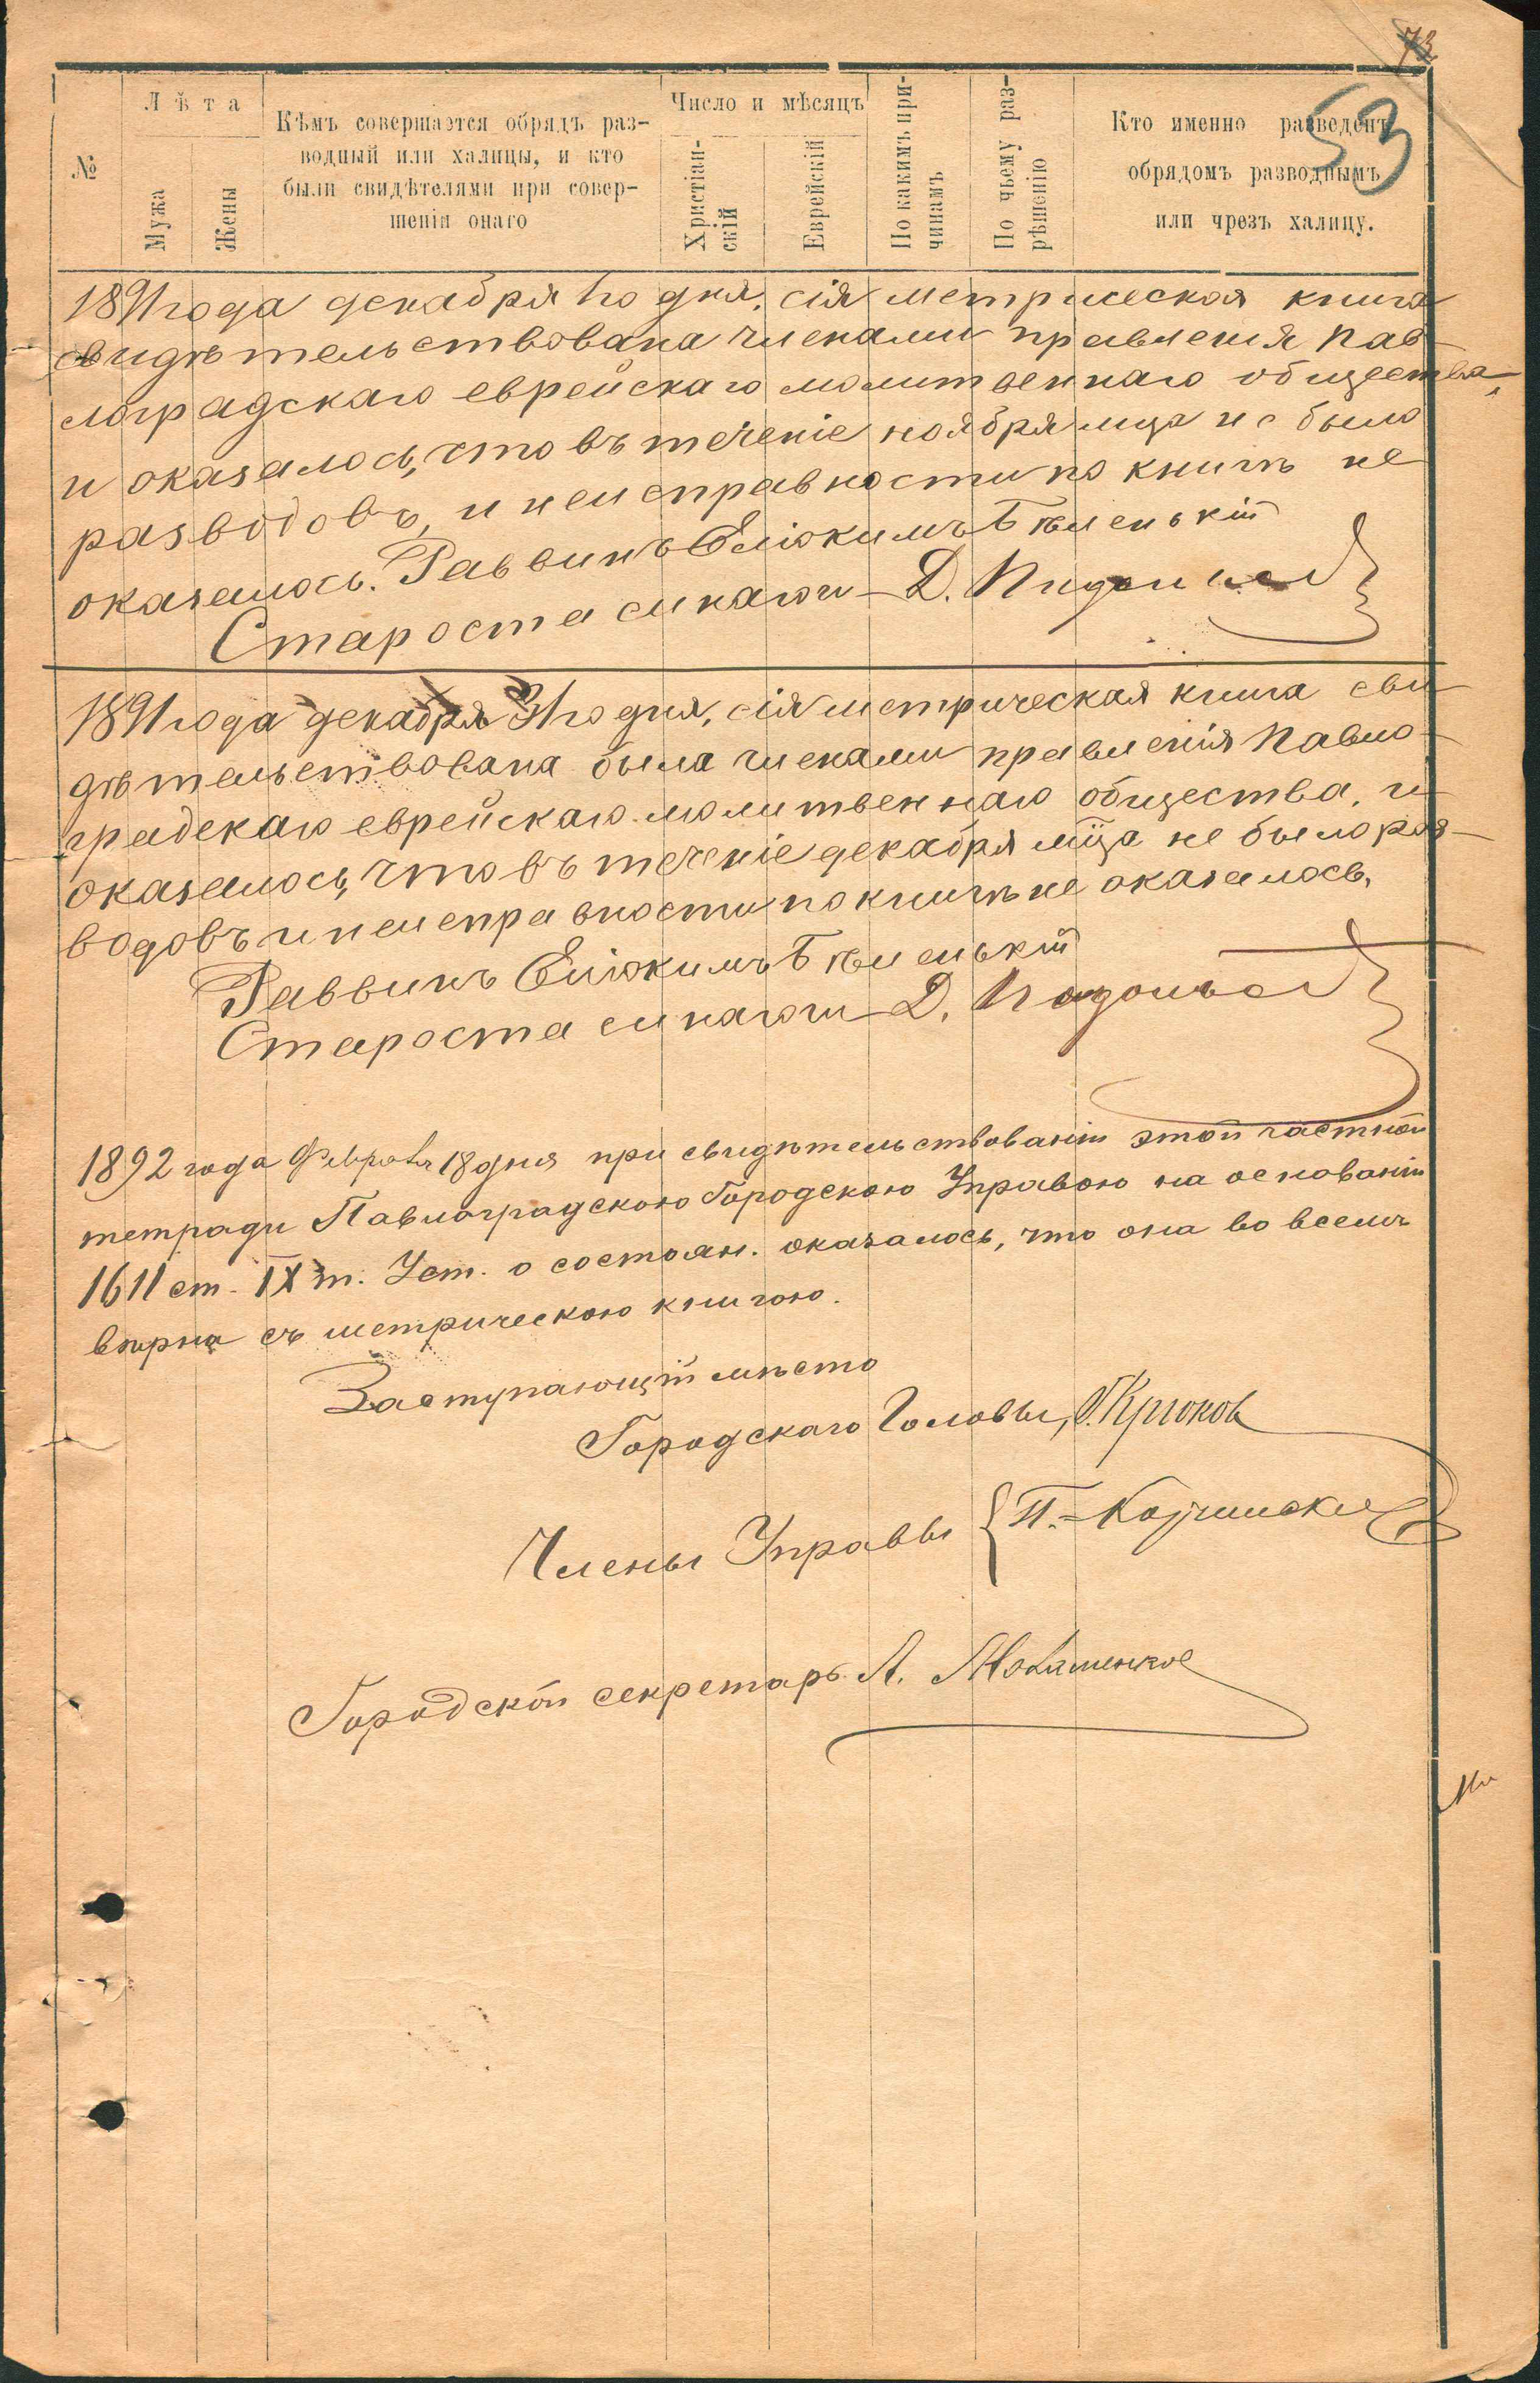 53
№
Лѣта
Мужа
Жены
Кѣмъ совершается обрядъ раз-
водный или халицы, и кто
были свидѣтелями при совер-
шеніи онаго
Число и мѣсяцъ
Христіан-
скій
Еврейскій
По какимъ при-
чинамъ
По чьему раз-
рѣшенію
Кто именно разведенъ
обрядомъ разводнымъ
или чрезъ халицу.
1891 года декабря 1го дня, сія метрическая книга
свидѣтельствована членами правленія Пав-
лоградскаго еврейскаго молитвеннаго общества,
и оказалось, что въ теченіе ноября мца не было
разводовъ, и неисправности по книгѣ не
оказалось. Раввинъ Еліокимъ Бѣленькій
Староста синагоги Д.
1891 года декабря 31го дня, сія метрическая книга сви-
дѣтельствована была членами правленія Павло-
градскаго еврейскаго молитвеннаго общества, и
оказалось, что въ теченіе декабря мца не было раз-
водовъ и неисправности по книгѣ не оказалось.
Раввинъ Еліокимъ Бѣленькій
Староста синагоги Д.
1892 года Февраля 18 дня при свидѣтельствованіи этой частной
тетради Павлоградскою Городскою Управою на основаніи
1611 ст. IX т. Уст. о состоян. оказалось, что она во всемъ
вѣрна съ метрическою книгою.
Заступающій мѣсто
Городскаго Головы, Крюковъ
Члены Управы { П.
Городской секретарь А.